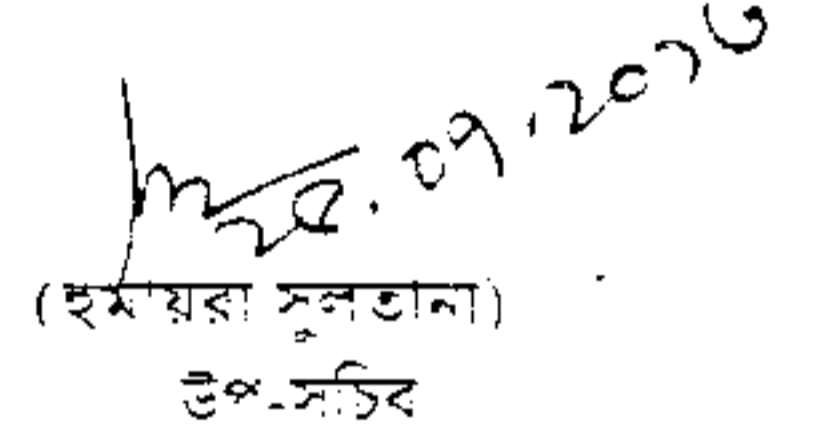 ২৫.০৭.২০১৩
(হুমায়রা সুলতানা)
উপ-সচিব